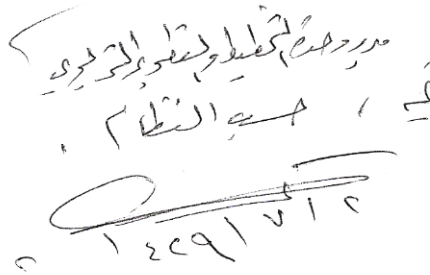 مدير وحدة التخطيط والتطوير التربوي
حسب النظام .
١٤٢٩/٧/٢